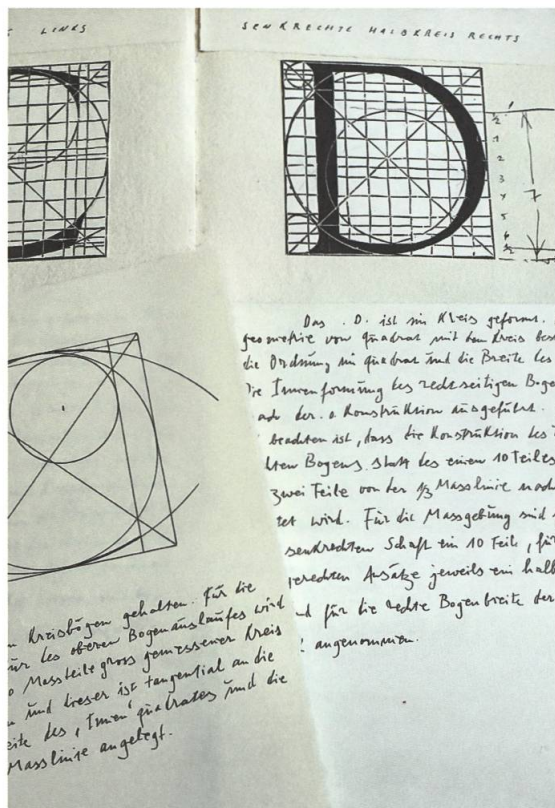 LINKS
SENKRECHTE HALBKREIS RECHTS
½
1
2
3
4
5
6
½
7
Das .D. ist im Kreis geformt.
geometrie vom quadrat mit dem Kreis
die Ordnung im quadrat und die Breite des
Die Innenformung des rechtseitigen
der .o Konstruktion ausgeführt.
beachten ist, dass die Konstruktion des
Bogens statt des einen 10 Teiles
zwei Teile von der ½ Masslinie
wird. Für die Massgebung sind
senkrechten Schaft ein 10 Teil, für
Ansätze jeweils ein halb
für die rechte Bogenbreite der
angenommen.
Kreisbögen gehalten. Für die
des oberen Bogenauslaufes wird
Massteile gross gemessener Kreis
und dieser ist tangential an die
des "Innen" quadrates und die
Masslinie angelegt.